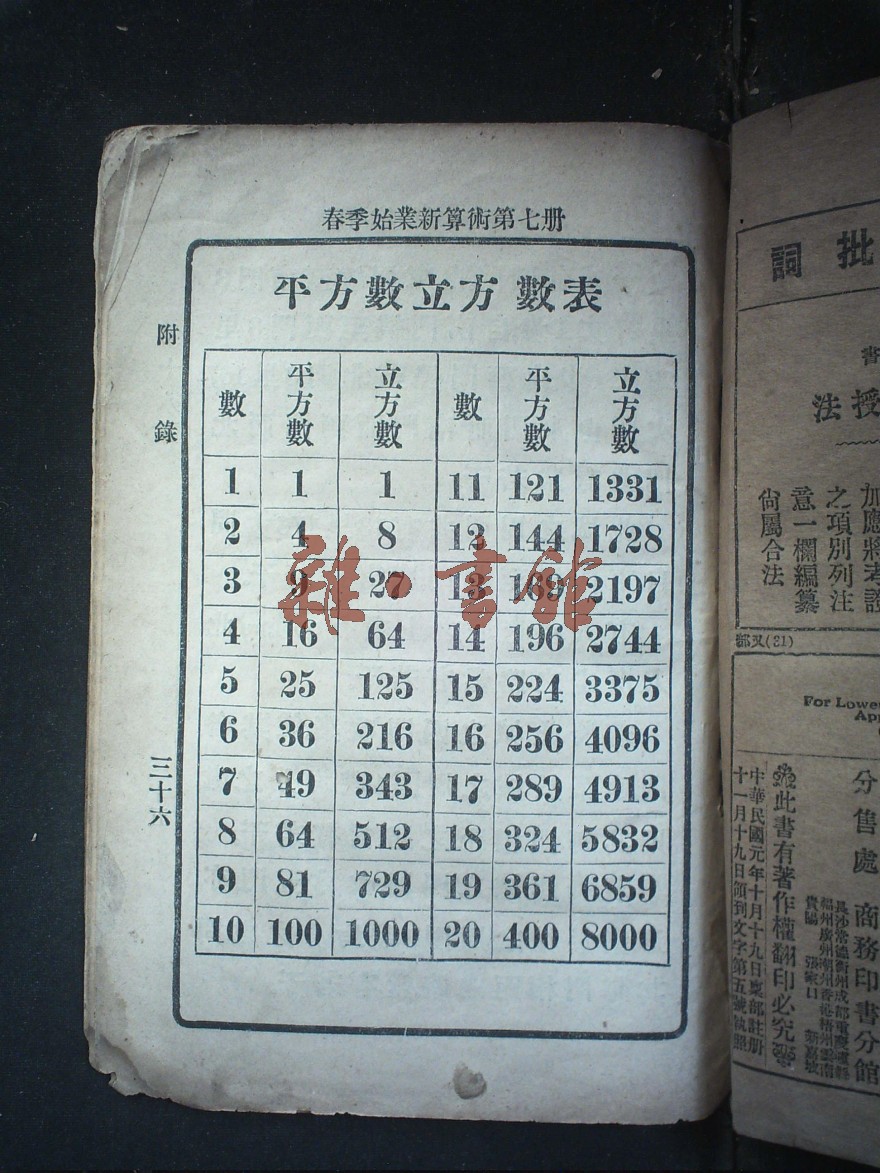 春季始業新算術第七册
平方數立方數表
附錄
三十六
數 平方數 立方數 數 平方數 立方數
1 1 1 11 121 1331
2 4 8 12 144 1728
3 9 27 13 169 2197
4 16 64 14 196 2744
5 25 125 15 224 3375
6 36 216 16 256 4096
7 49 343 17 289 4913
8 64 512 18 324 5832
9 81 729 19 361 6859
10 100 1000 20 400 8000
雜·書館
批詞
書
授法
加應將考證
之項別列注
意一欄編纂
尙屬合法
部叉(21)
For Lowe
App
分售處
商務印書分館
此書有著作權翻印必究
中華民國元年十月十九日稟部註册
十一月十九日領到文字第五號執照